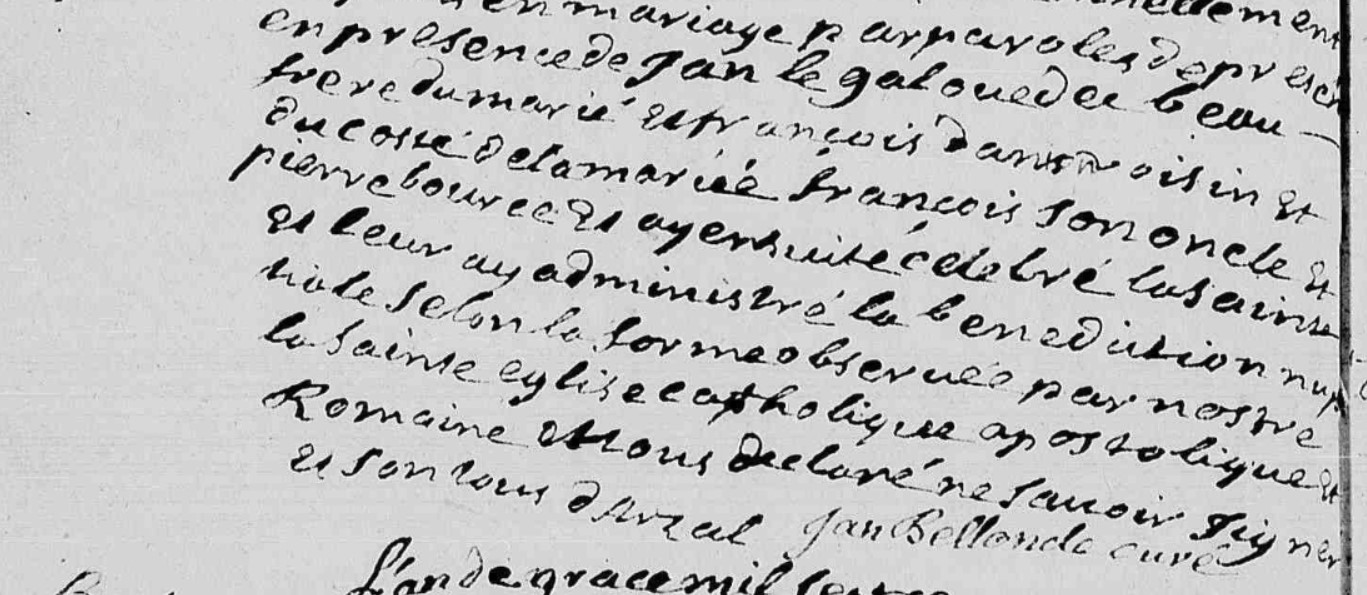 en mariage par paroles de presen
en presence de Jan le galouedec beau
frere du marié et françois danet voisin et
du costé de la mariée françois son oncle et
pierre bourcé et ay ensuite célébré la sainte
et leur ay administré la benediction nup
tiale selon la forme observée par nostre
la sainte eglise catholique apostolique et
Romaine et tous declaré ne sauoir signer
et son tous darzal Jan Bellonda curé
L'an de grace mil sept